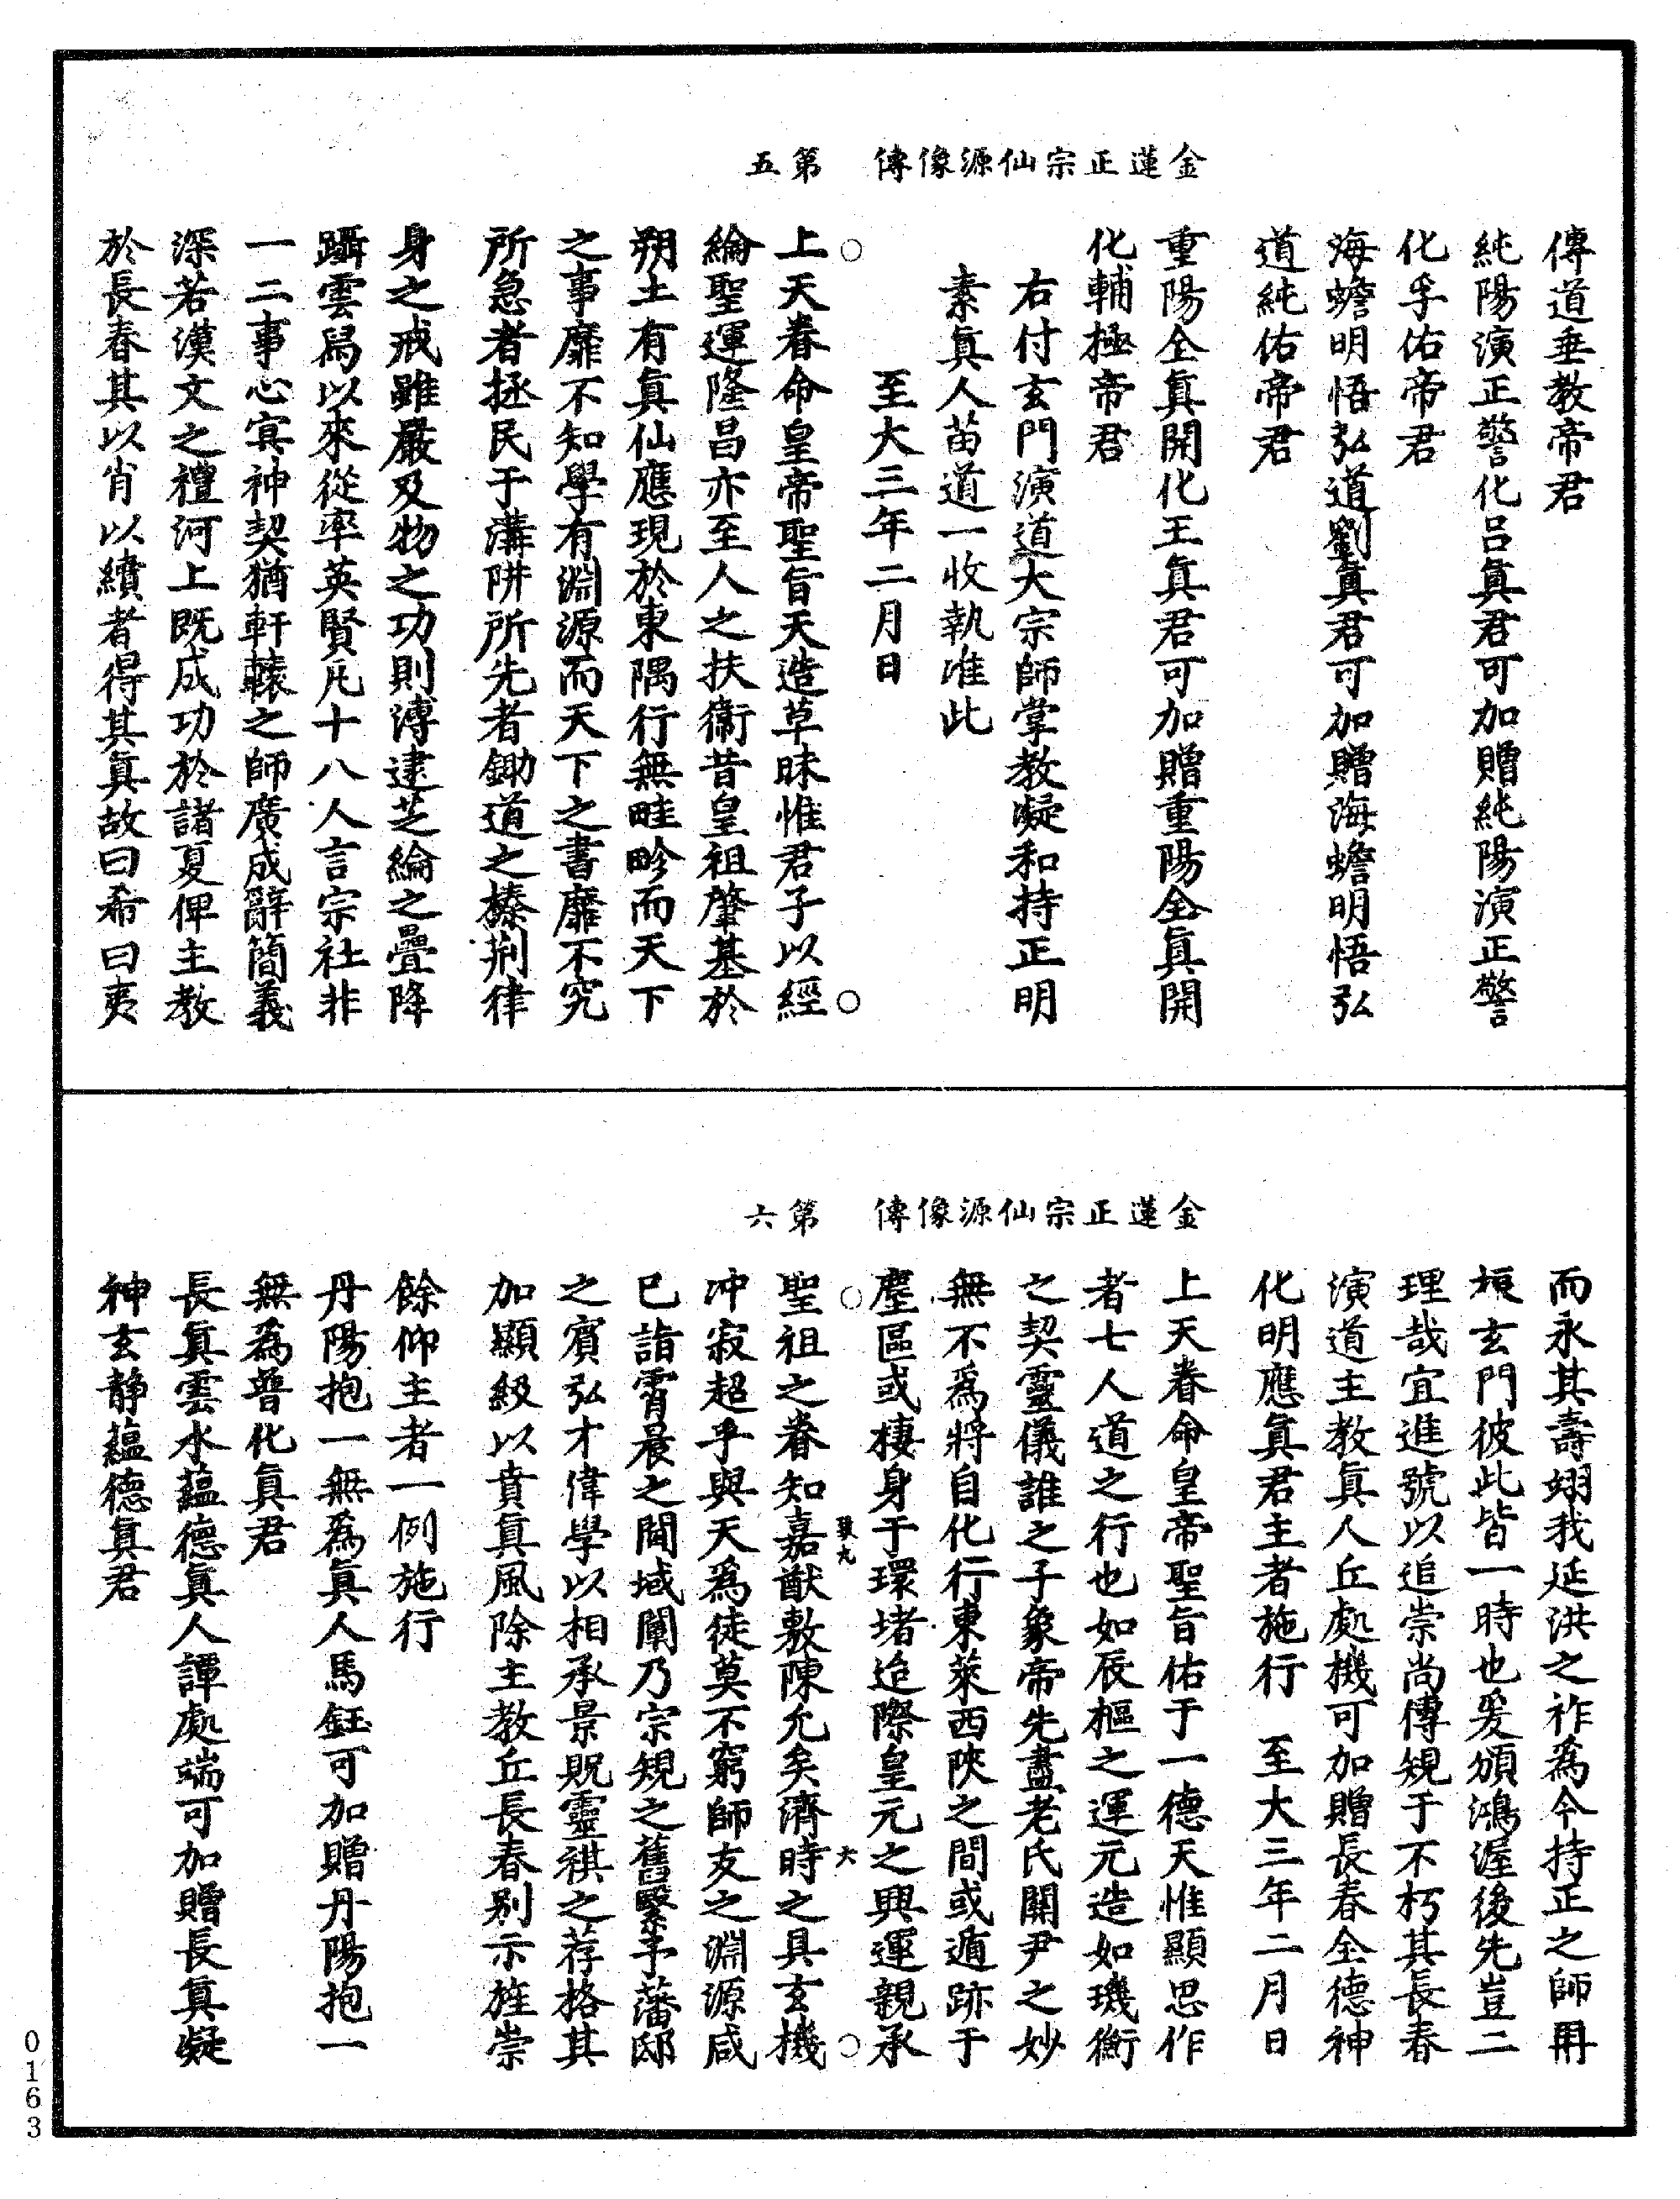 金蓮正宗仙源像傳　第五
傳道垂教帝君
純陽演正警化呂真君可加贈純陽演正警
化孚佑帝君
海蟾明悟弘道劉真君可加贈海蟾明悟弘
道純佑帝君
重陽全真開化王真君可加贈重陽全真開
化輔極帝君
右付玄門演道大宗師掌教凝和持正明
素真人苗道一收執准此
至大三年二月日
上天眷命皇帝聖旨天造草昧惟君子以經
綸聖運隆昌亦至人之扶衞昔皇祖肇基於
朔土有真仙應現於東隅行無畦畛而天下
之事靡不知學有淵源而天下之書靡不究
所急者拯民于溝阱所先者鋤道之榛荆律
身之戒雖嚴及物之功則溥逮芝綸之疊降
躡雲舄以來從率英賢凡十八人言宗社非
一二事心寘神契猶軒轅之師廣成辭簡義
深若漢文之禮河上既成功於諸夏俾主教
於長春其以肖以續者得其真故曰希曰夷
金蓮正宗仙源像傳　第六
而永其壽翊我延洪之祚爲今持正之師再
桓玄門彼此皆一時也爰頒鴻渥後先豈二
理哉宜進號以追崇尚傳規于不朽其長春
演道主教真人丘處機可加贈長春全德神
化明應真君主者施行　至大三年二月日
上天眷命皇帝聖旨佑于一德天惟顯思作
者七人道之行也如辰樞之運元造如璣衡
之契靈儀誰之子象帝先盡老氏關尹之妙
無不爲將自化行東萊西陝之間或遁跡于
塵區或棲身于環堵迨際皇元之興運親承
致九
六
聖祖之眷知嘉猷敷陳允矣濟時之具玄機
冲寂超乎與天爲徒莫不窮師友之淵源咸
已詣霄晨之閬域闡乃宗規之舊繄予藩邸
之賓弘才偉學以相承景貺靈祺之荐格其
加顯級以賁真風除主教丘長春别示旌崇
餘仰主者一例施行
丹陽抱一無爲真人馬鈺可加贈丹陽抱一
無爲普化真君
長真雲水蘊德真人譚處端可加贈長真凝
神玄静蘊德真君
0163